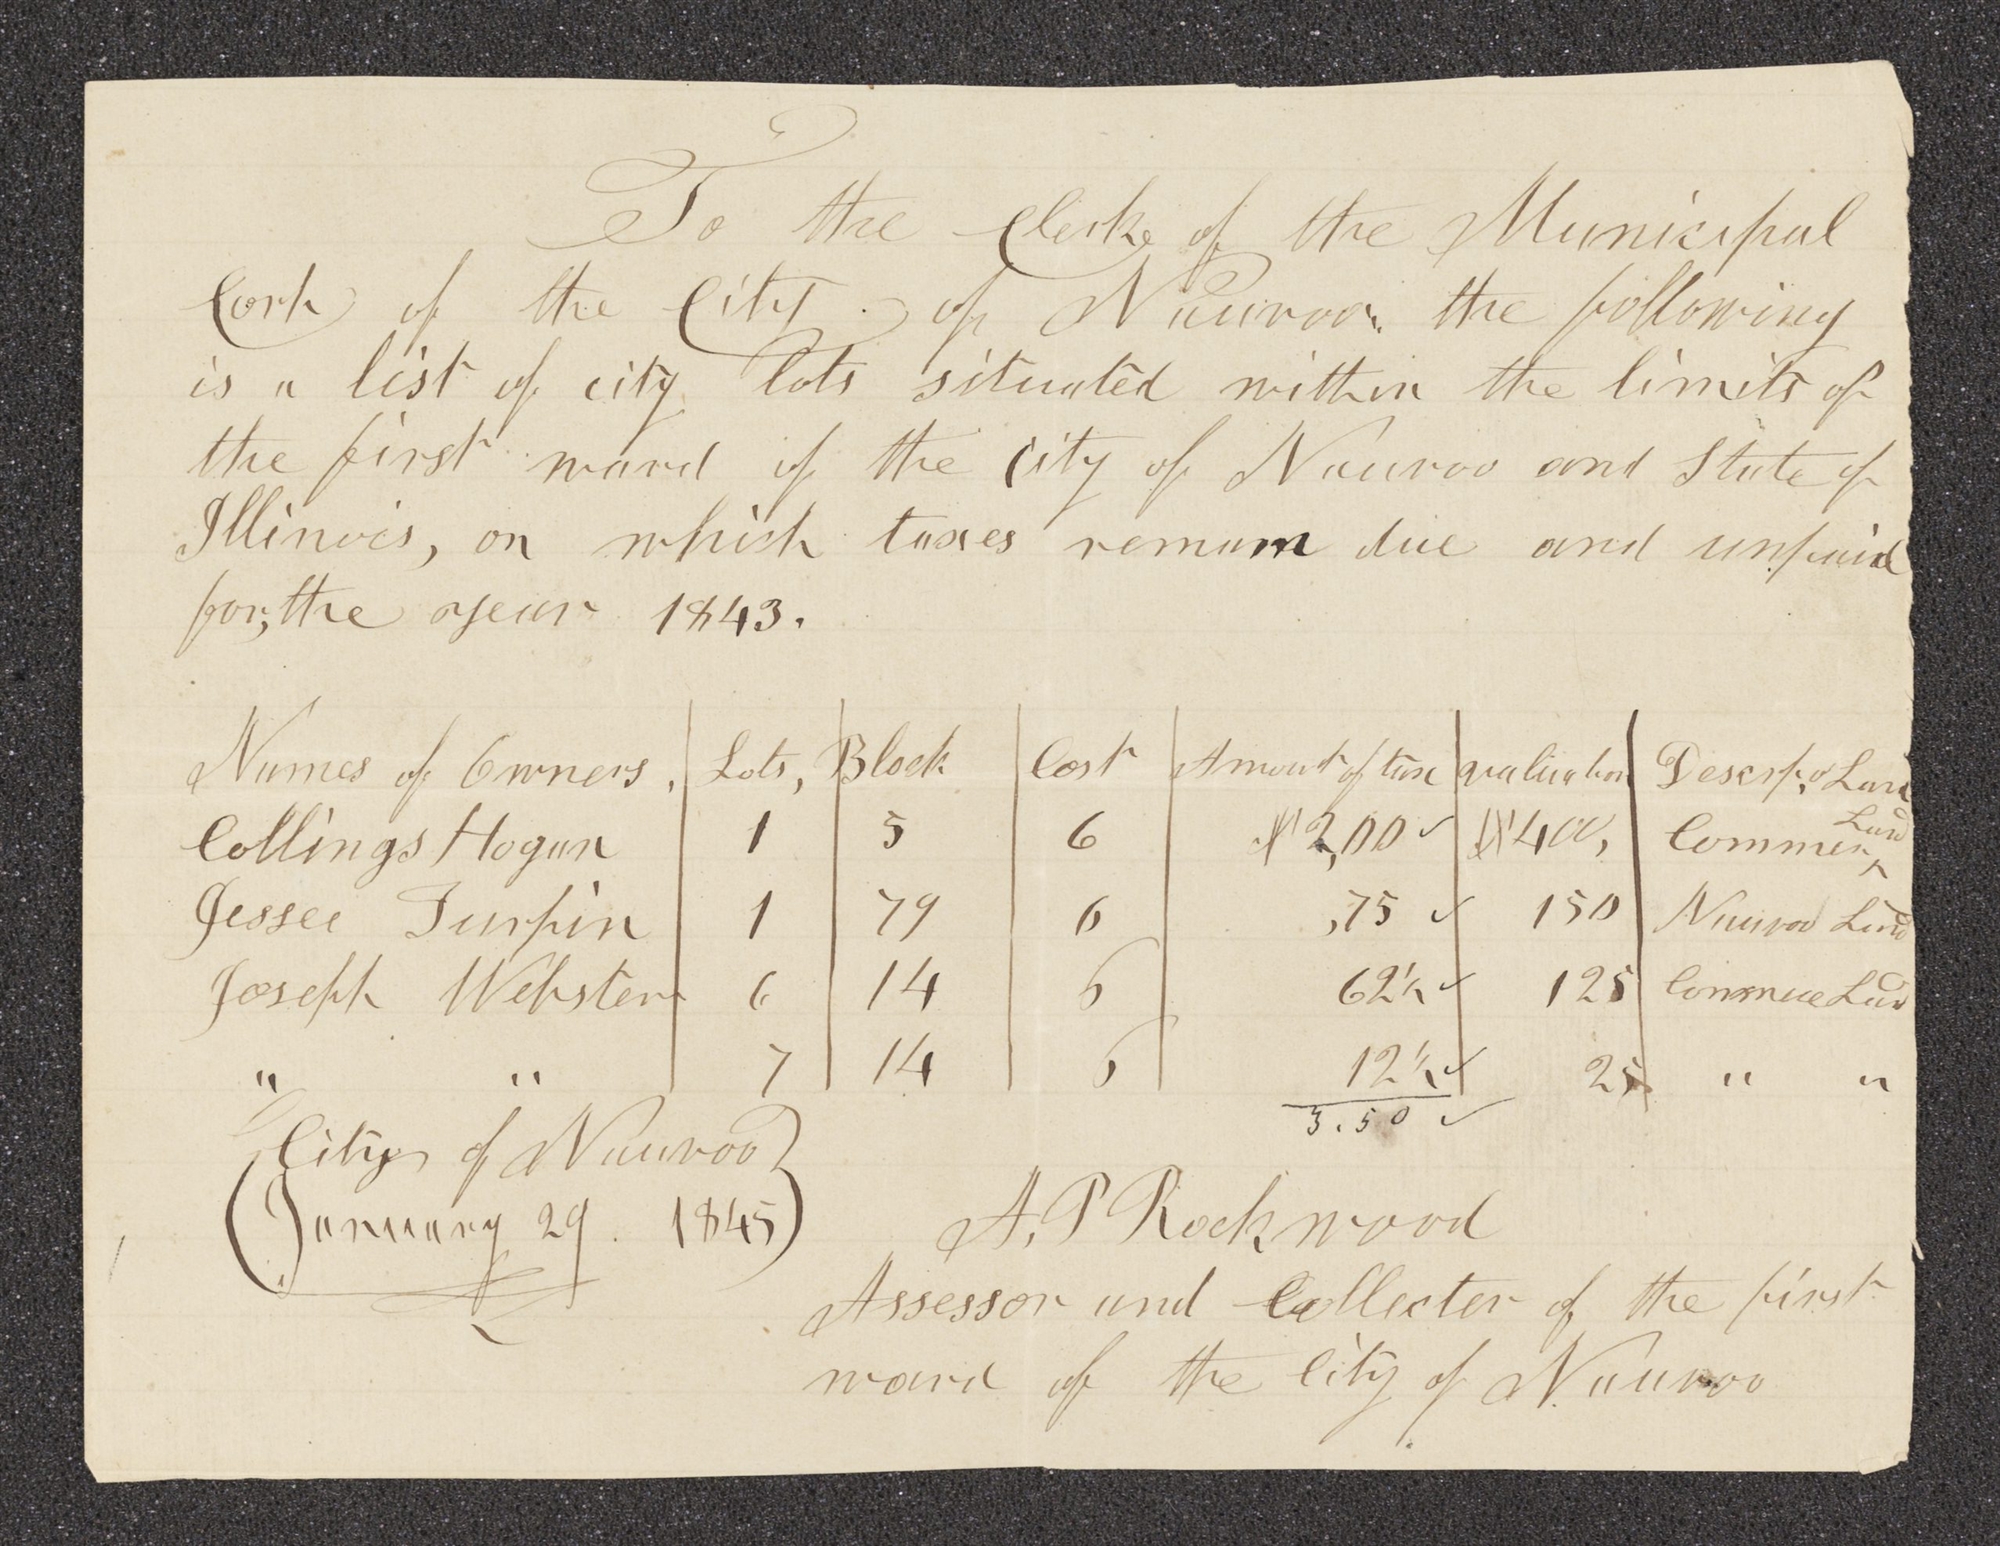 To the Clerk of the Municipal
Cort of the City of Nauvoo. the following
is a list of city lots situated within the limits of
the first ward of the City of Nauvoo and State of
Illinois, on which taxes remain due and unpaid
for, the year 1843.
Names of Owners, Lots, Block Cost Amount of tax valuation Descrp, o Land
Collings Hogan 1 5 6 $2,00 ✓ $400, Commer Land
Jessee Turpin 1 79 6 ,75 ✓ 150 Nauvoo Land
Joseph Webster 6 14 6 62½ ✓ 125 Commece Land
" " 7 14 6 12½ ✓ 25 " "
3.50 ✓
City of Nauvoo
January 29. 1845
A. P Rockwood
Assessor and Collecter of the first
ward of the City of Nauvoo